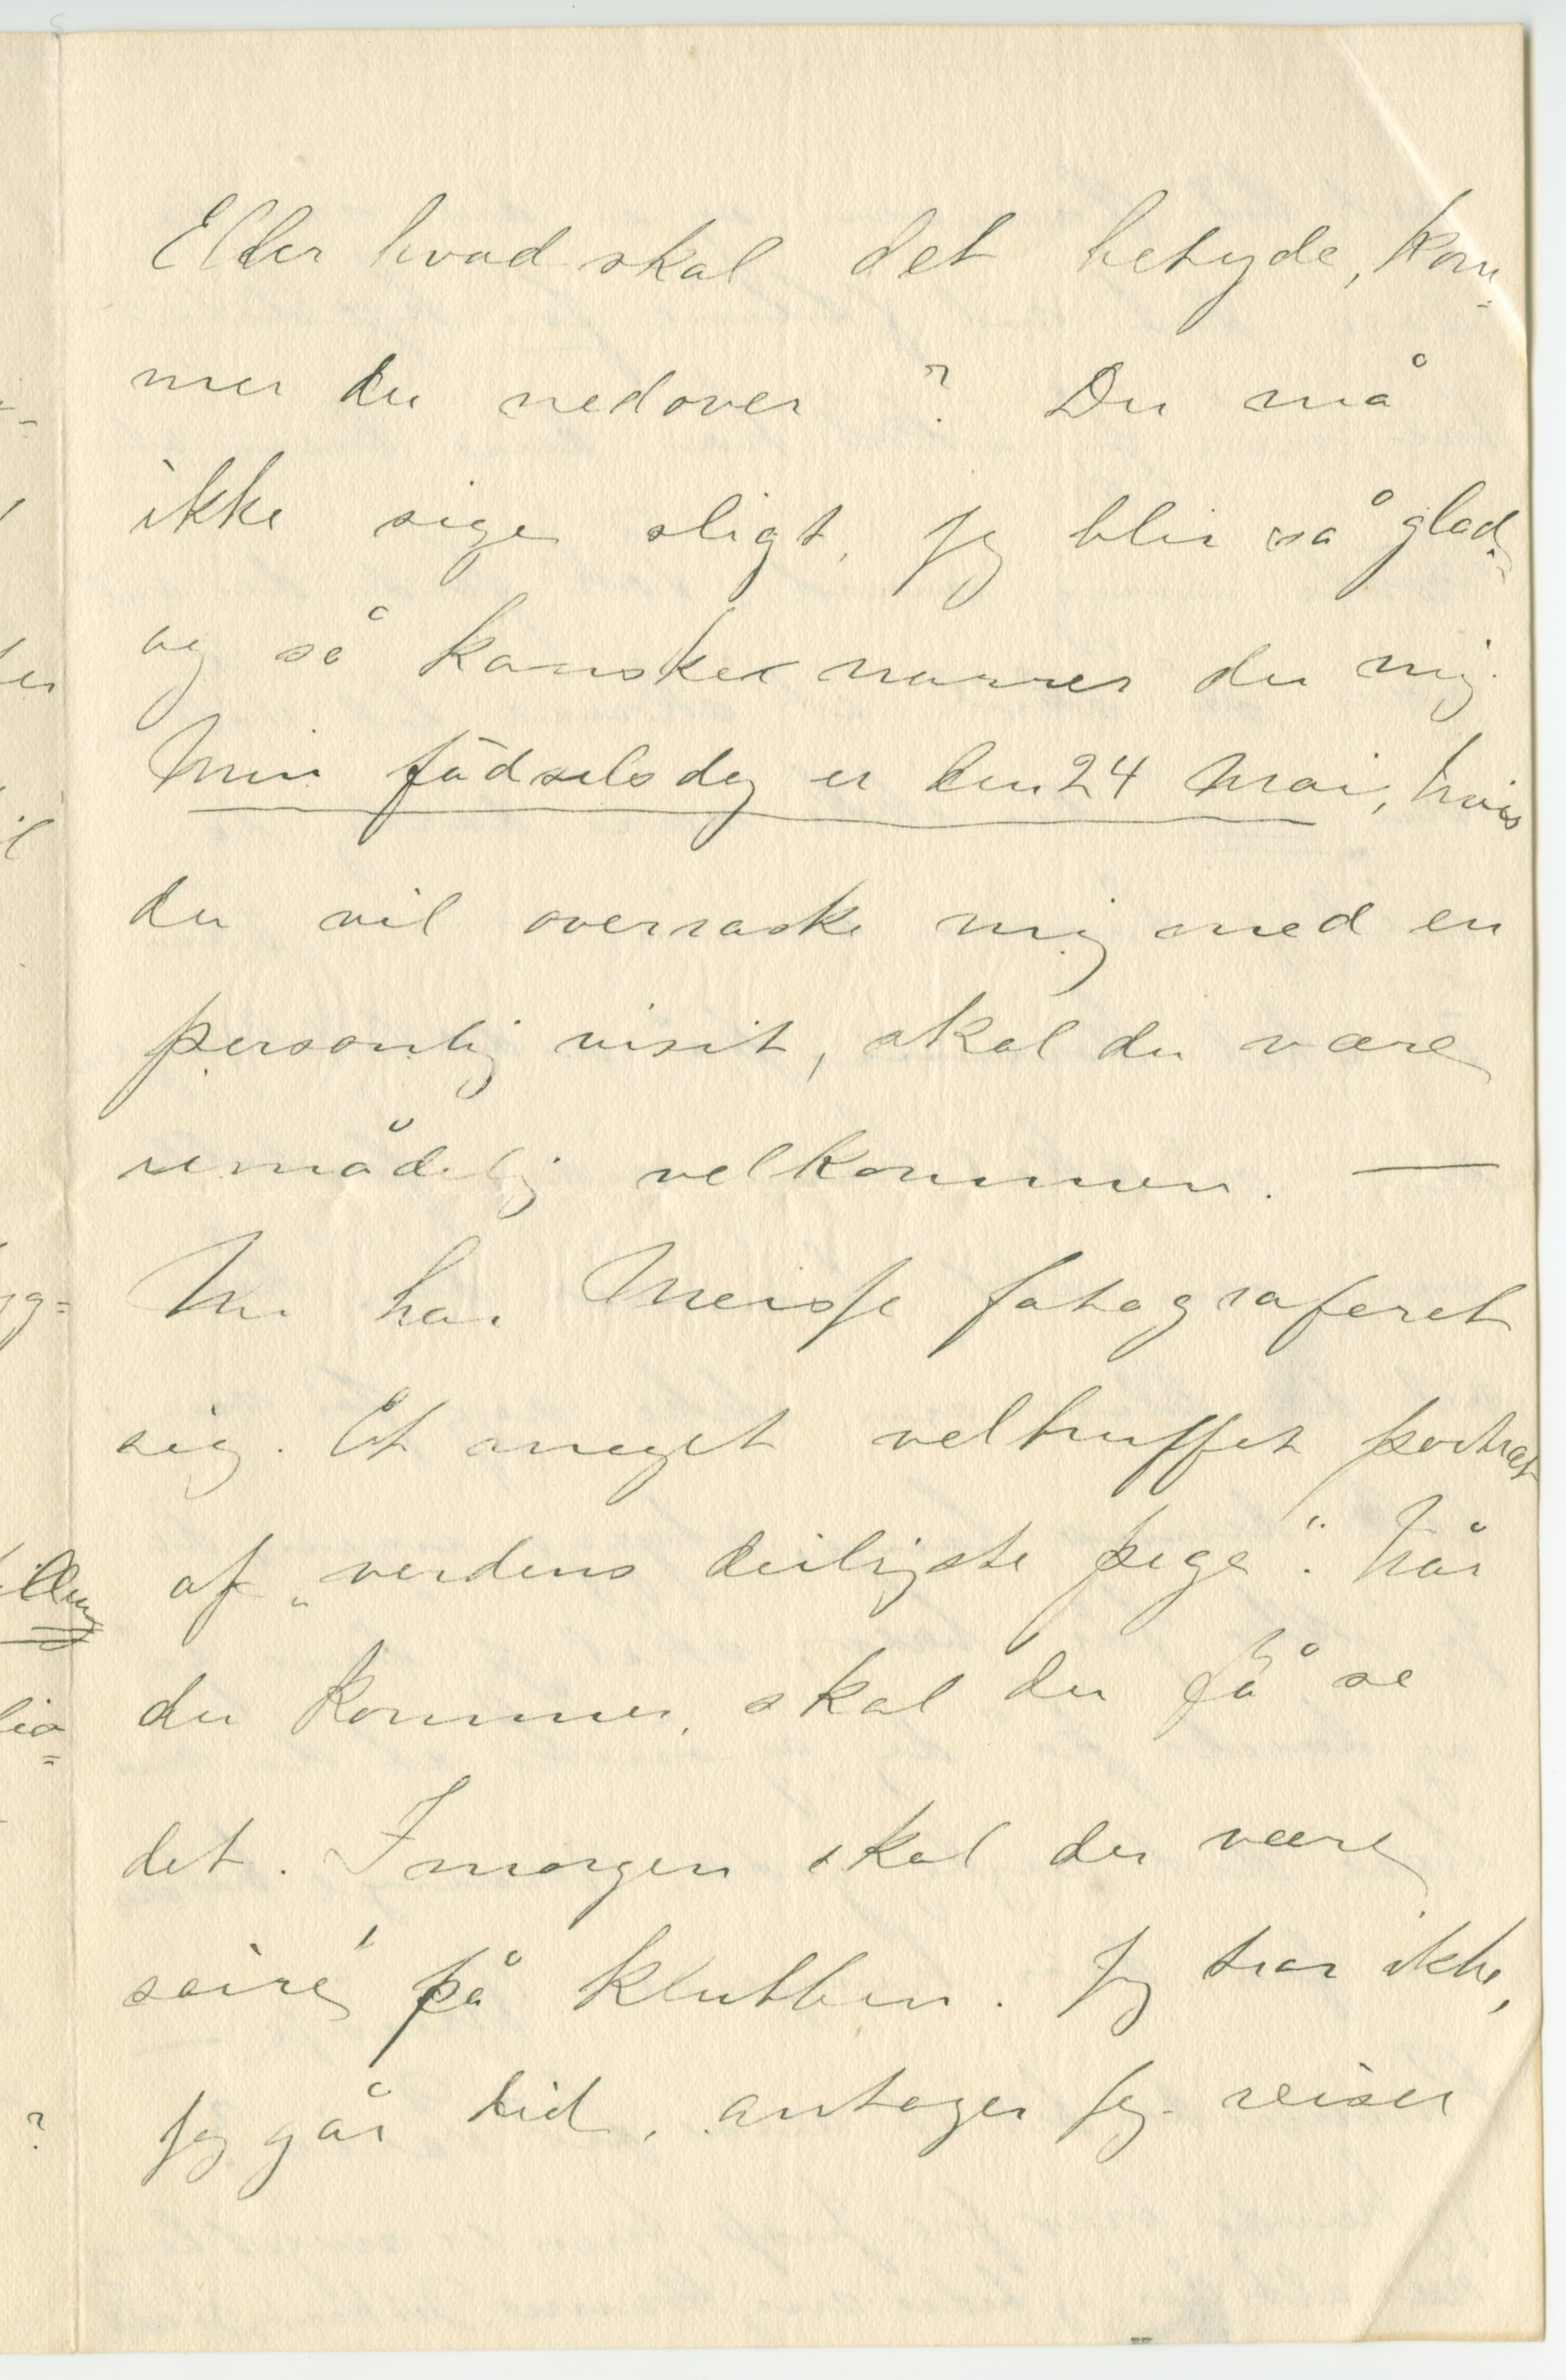 Eller hvad skal det betyde, kom=
mer du nedover? Du må
ikke sige sligt, jeg blir så glad,
og så kansker narrer du mig.
Min födselsdag er den 24 Mai, hvis
du vil overraske mig med en
personlig visit, skal du være
umådelig velkommen. —
Nu har Meisse fotograferet
sig. Et meget veltruffet portræt
af „verdens deiligste pige“. Når
du kommer, skal du få se
det. Imorgen skal der være
soiré på klubben. Jeg tror ikke,
jeg går did, antager jeg reiser